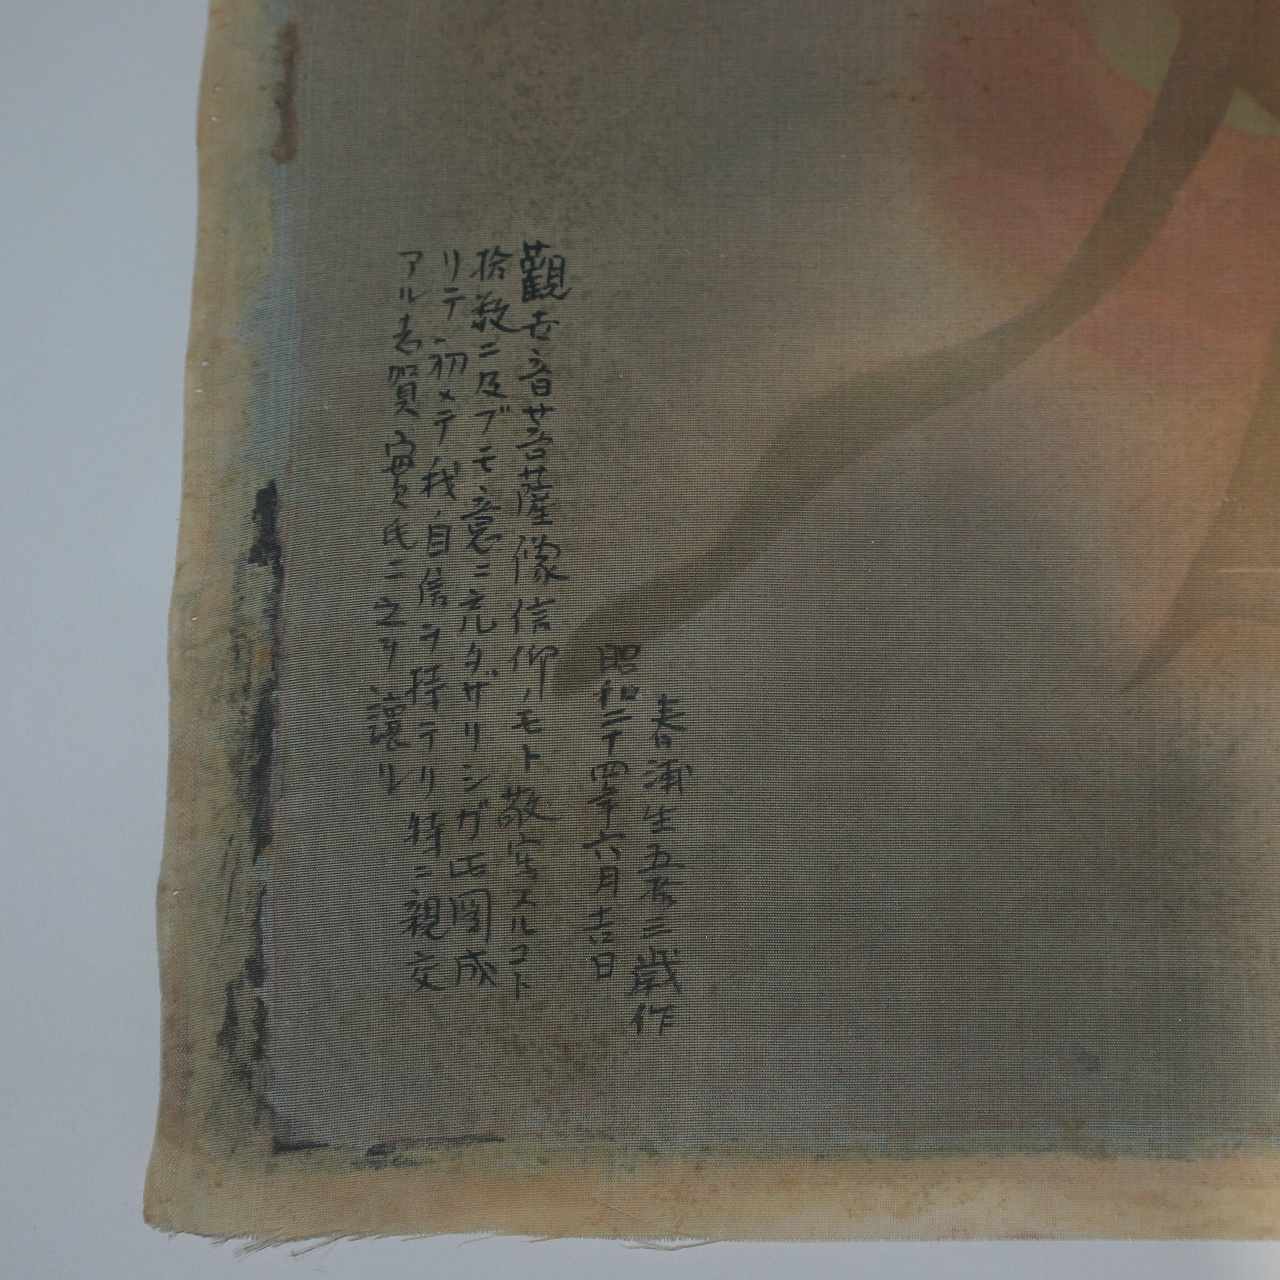 春浦生五拾三歳作
昭和二十四年六月吉日
觀世音菩薩像信仰ノモト敬写スルコト
拾数ニ及ブモ意ニ充タザリシガ此図成
リテ初メテ我自信ヲ持テリ特ニ親交
アル志賀實氏ニ之ヲ讓ル